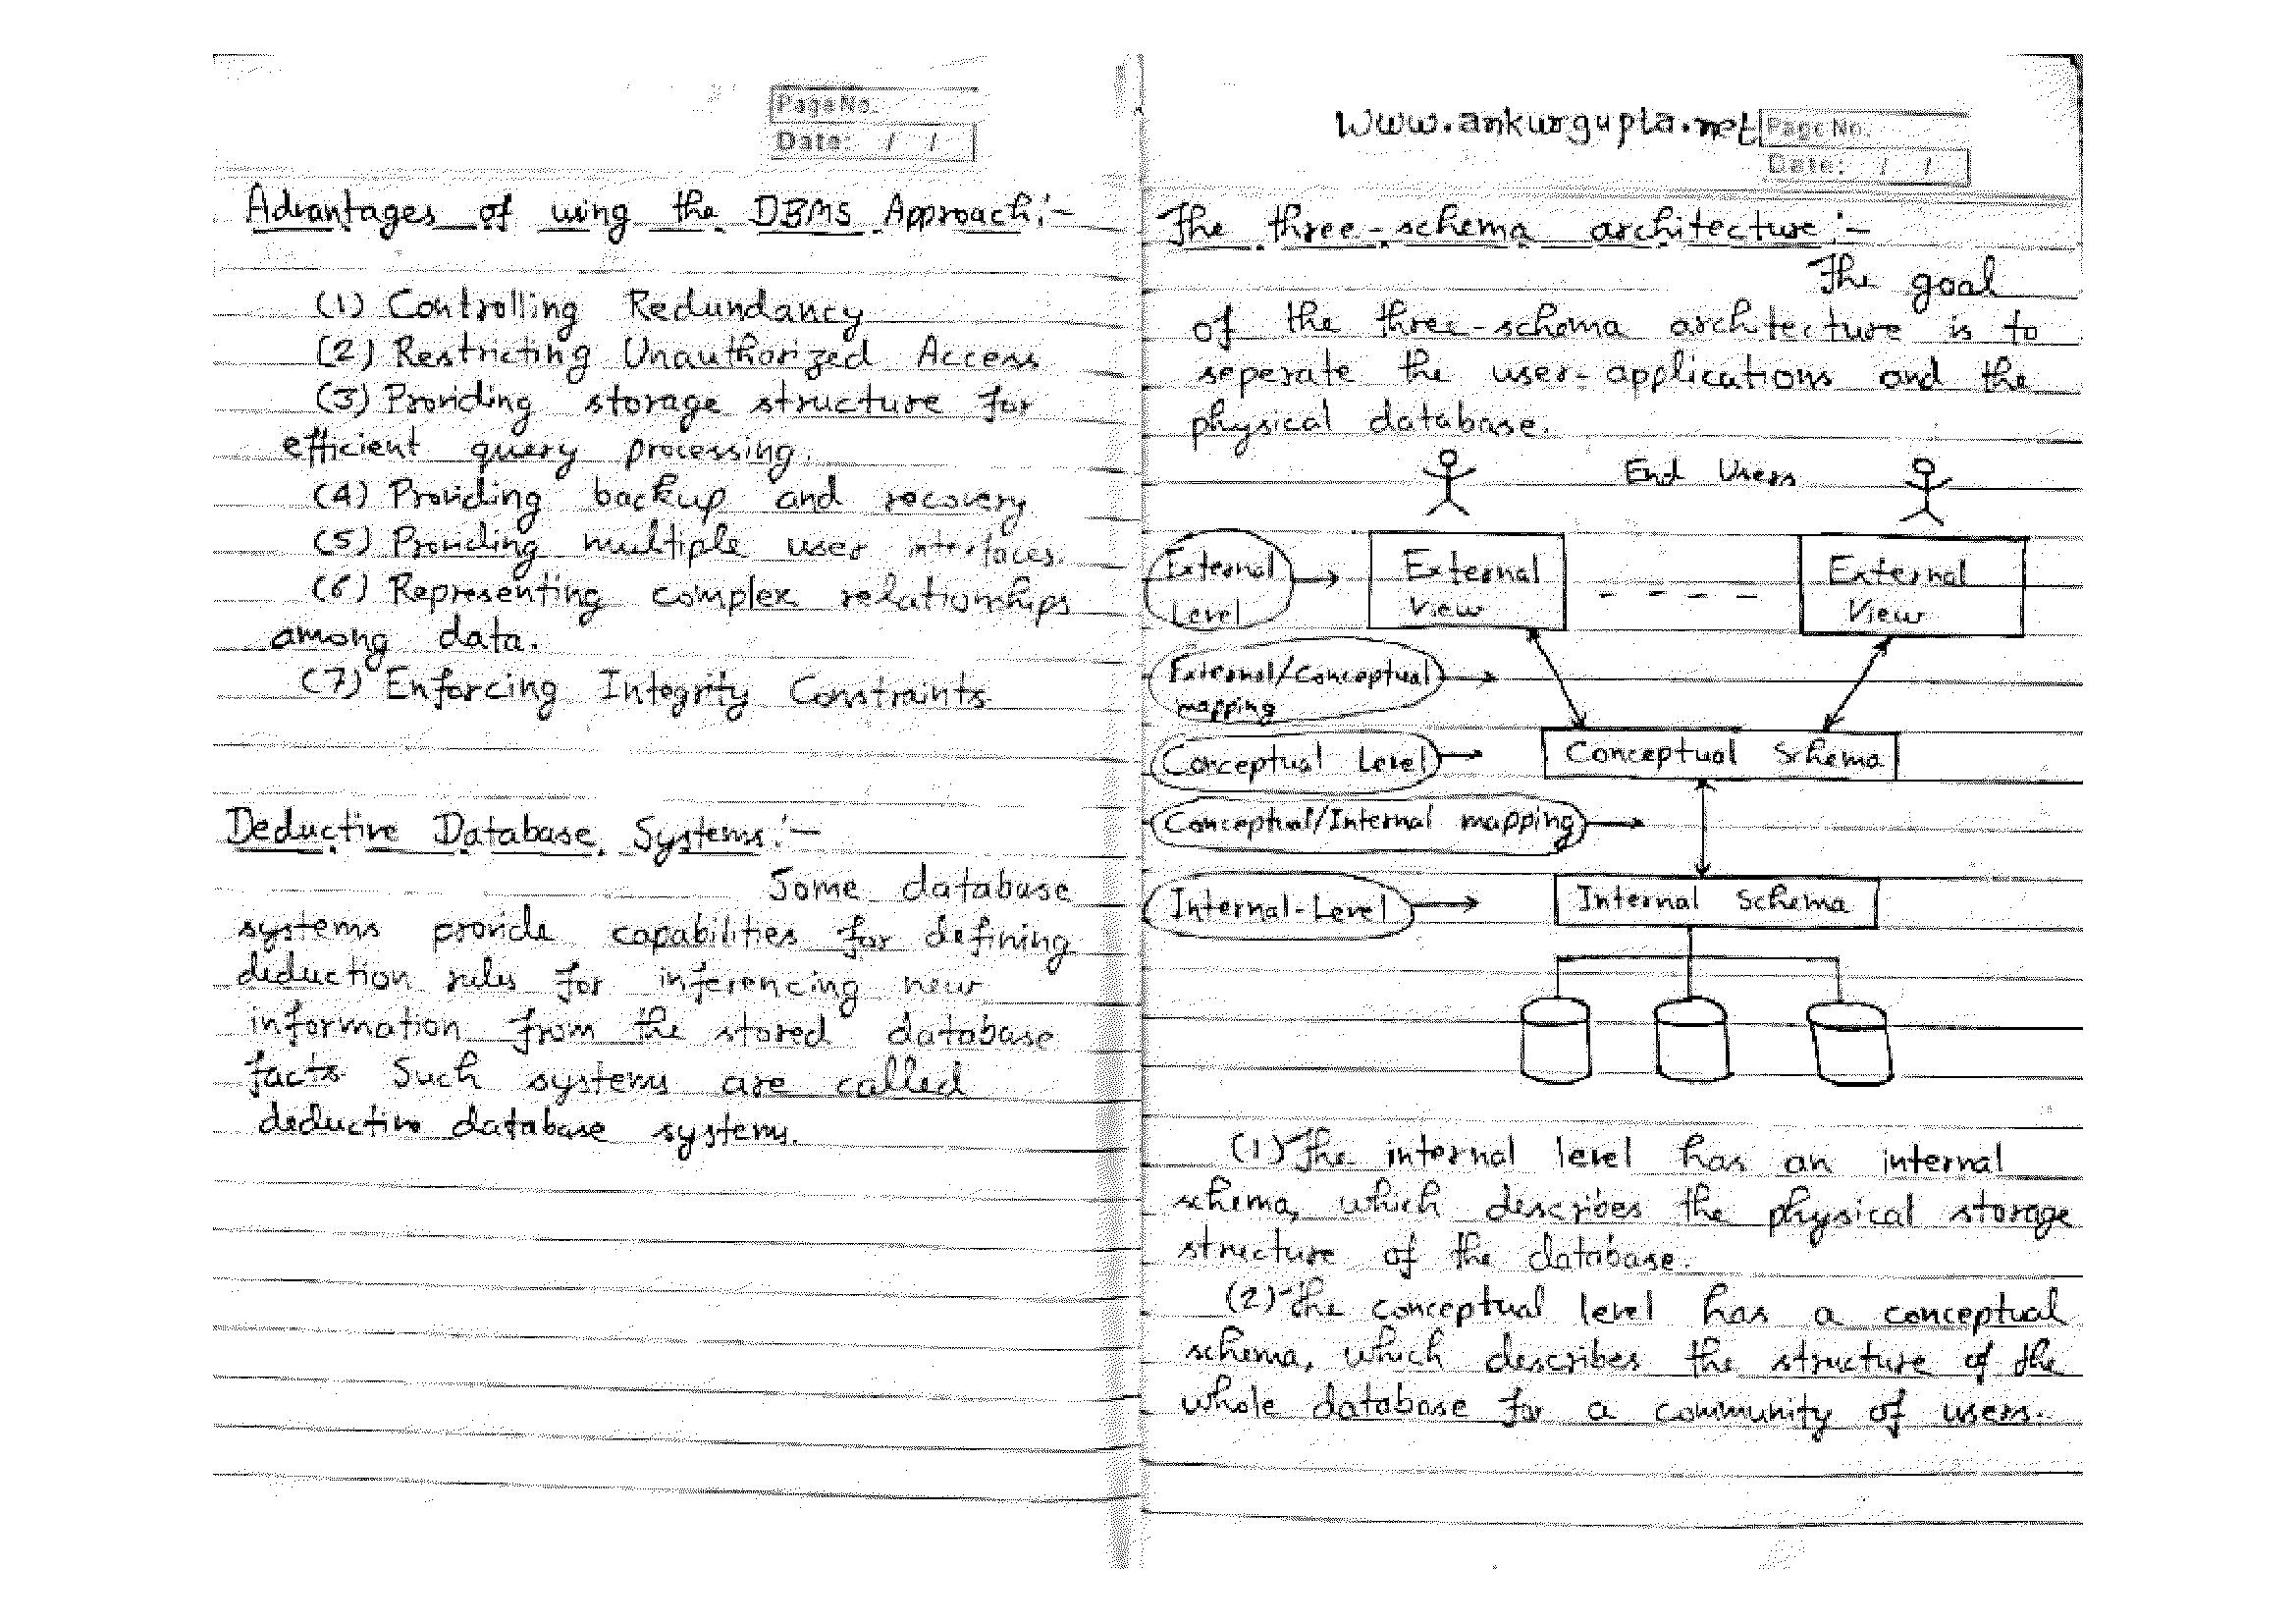 Page No.
Date: / /
Advantages of using the DBMS Approach:-
(1) Controlling Redundancy
(2) Restricting Unauthorized Access
(3) Providing storage structure for
efficient query processing.
(4) Providing backup and recovery
(5) Providing multiple user interfaces.
(6) Representing complex relationships
among data.
(7) Enforcing Integrity Constraints
Deductive Database Systems:-
Some database
systems provide capabilities for defining
deduction rules for inferencing new
information from the stored database
facts. Such systems are called
deductive database systems.
www.ankurgupta.net
Page No.
Date: / /
The three-schema architecture:-
The goal
of the three-schema architecture is to
seperate the user-applications and the
physical database.
End Users
External
Level
External
View
External
View
External/Conceptual
mapping
Conceptual Level
Conceptual Schema
Conceptual/Internal mapping
Internal-Level
Internal Schema
(1) The internal level has an internal
schema, which describes the physical storage
structure of the database.
(2) The conceptual level has a conceptual
schema, which describes the structure of the
whole database for a community of users.